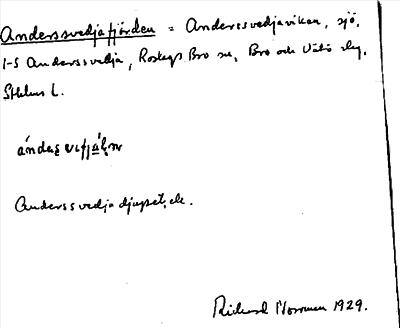 Anderssvedjafjärden = Anderssvedjaviken, sjö.
i S Anderssvedja, Roslags Bro sn, Bro och Vätö slg,
Sthlms l.
Anderssvedja djupet, ek.
Rickard Norrman 1929.